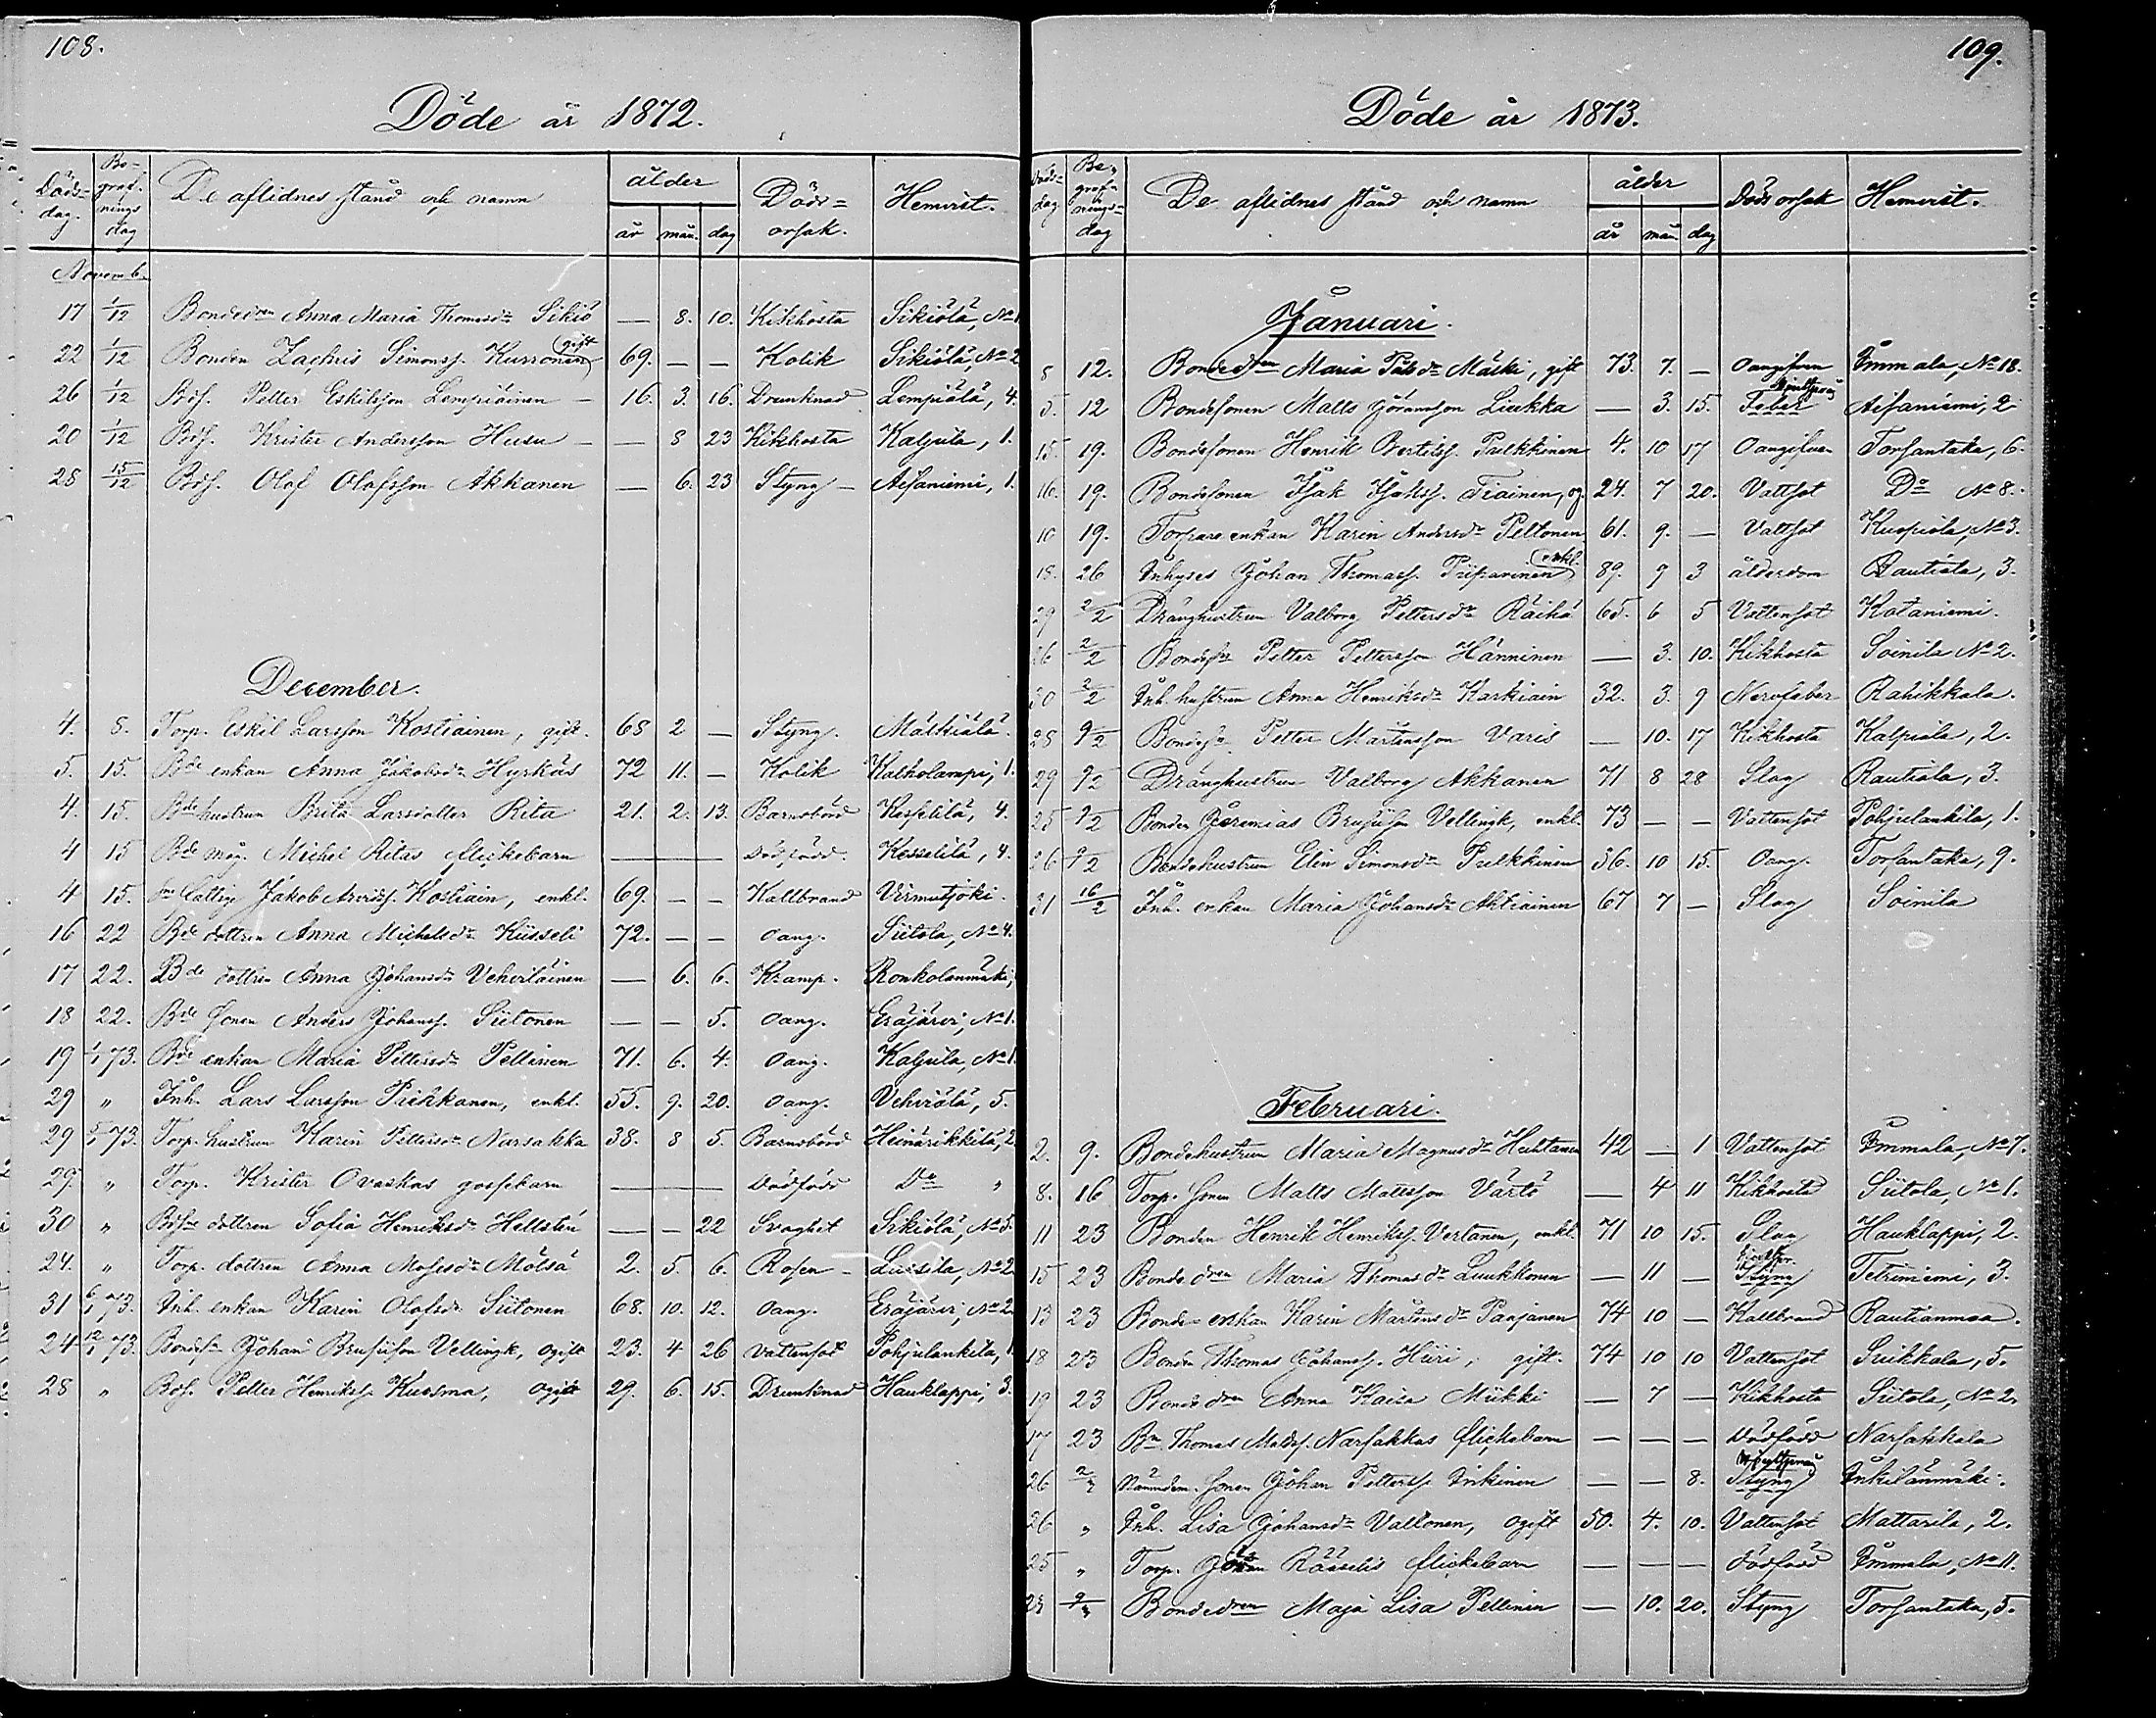 108.
Döde år 1872.
Döds-dag. Begrafnings dag De aflidnes stånd och namn ålder år mån. dag Döds-orsak. Hemvist.
Novemb.
17 1/12 Bondedren Anna Maria Thomasdr Sikiö — 8. 10. Kikhosta Sikiölä, No 1
22 1/12 Bonden Zachris Simonss. Kurronen gift 69. — — Kolik Sikiölä, No 2
26 1/12 Bds. Petter Eskilsson Lempiäinen — 16. 3. 16. Drunknad Lempiälä, 4.
20 1/12 Bds. Krister Andersson Husu — — 8 23 Kikhosta Kaljula, 1.
28 15/12 Bds. Olof Olofsson Akkanen — 6. 23 Styng — Aisaniemi, 1.
December.
4. 8. Torp. Eskil Larsson Kostiainen, gift. 68 2 — Styng. Mälkiälä.
5. 15. Bde enkan Anna Jakobsdr Hyrkäs 72 11. — Kolik Kalholampi, 1.
4. 15. Bde hustrun Brita Larsdotter Rita 21. 2. 13. Barnsbörd Kesselilä, 4.
4 15 Bde måg. Michel Ritas flickebarn — — — Dödfödd. Kesselilä, 4.
4 15. fattige Jakob Arvidss. Kostiain, enkl. 69. — — Kallbrand Virmutjoki.
16 22 Bde dottren Anna Michelsdr Kiisseli 72. — — Oang. Siitola, No 4.
17 22. Bde dottren Anna Johansdr Vehviläinen — 6. 6. Kramp. Ronkolanmäki,
18 22. Bde sonen Anders Johanss. Siitonen — — 5. Oang. Eräjärvi, No 1.
19 1/1 73. Bde enkan Maria Pettersdr Pellinen 71. 6. 4. Oang. Kaljula, No 1.
29 „ Inh. Lars Larsson Pukkanen, enkl. 55. 9. 20. Oang. Vehviälä, 5.
29 5/1 73. Torp. hustrun Karin Pettersdr Narsakka 38. 8 5. Barnsbörd Heinärikkilä, 2
29. „ Torp. Krister Ovaskas gossebarn — — — Dödfödd Do „
30 „ Bds dottren Sofia Henriksdr Hellstén — — 22 Svaghet Sikiölä, No 5
24. „ Torp. dottren Anna Mosesdr Mölsä 2. 5. 6. Rosen — Lussila, No 2
31 6/1 73. Inh. enkan Karin Olofsdr Siitonen 68. 10. 12. Oang. Eräjärvi, No 2
24 12/1 73. Bondes. Johan Brusiison Vellingk, ogift 23. 4 26 Vattensot Pohjalankila, 1
28 „ Bds. Petter Henrikss. Kuosma, ogift 29. 6. 15. Drunknad Hauklappi, 3.
109.
Döde år 1873.
Döds-dag Begrafnings-dag De aflidnes stånd och namn ålder år mån. dag Dödsorsak Hemvist.
Januari.
8 12. Bondedren Maria Pålsdr Mälki, gift 73. 7. — Oangifven Immala, No 18.
5. 12 Bondesonen Matts Göransson Liukka — 3. 15. Feber Aisaniemi, 2
15. 19. Bondesonen Henrik Bertilss. Pulkkinen 4. 10 17 Oangifven Torsantaka, 6.
16. 19. Bondesonen Isak Isakss. Tiainen, og. 24. 7 20. Vattsot Do No 8.
10 19. Torpare enkan Karin Andersdr Peltonen 61. 9. — Vattsot Kuopiola, No 3.
18. 26 Inhyses Johan Thomass. Piiparinen enkl. 89. 9 3 ålderdom Rautiala, 3.
29 2/2 Dränghustrun Valborg Pettersdr Räihä 65. 6 5 Vattensot Kataniemi.
26 2/2 Bondesn Petter Pettersson Hänninen — 3. 10. Kikhosta Soinila No 2.
30 2/2 Inh. hustrun Anna Henriksdr Karkiain 32. 3. 9 Nervfeber Rahikkala.
28 9/2 Bondesn Petter Mårtensson Varis — 10. 17 Kikhosta Kalpiala, 2.
29 9/2 Dränghustrun Valborg Akkanen 71 8 28 Slag Rautiala, 3.
25 9/2 Bonden Jeremias Brusiison Vellingk, enkl. 73 — — Vattensot Pohjalankila, 1.
26 9/2 Bondehustrun Elin Simonsdr Pulkkinen 36. 10 15. Oang. Torsantaka, 9.
31 16/2 Inh. enkan Maria Johansdr Ahtiainen 67 7 — Slag Soinila
Februari.
2. 9. Bondehustrun Maria Magnusdr Huhtanen 42 — 1 Vattensot Immala, No 7.
8. 16 Torp. sonen Matts Mattsson Värtö — 4 11 Kikhosta Siitola, No 1.
11 23 Bonden Henrik Henrikss. Vertanen, enkl. 71 10 15. Slag Hauklappi, 2.
15 23 Bondedren Maria Thomasdr Luukkonen — 11 — Styng Tetriniemi, 3.
13 23 Bonde enkan Karin Mårtensdr Paajanen 74 10 — Kallbrand Rautianmaa.
18 23 Bonden Thomas Johanss. Hiiri, gift. 74 10 10 Vattensot Suikkala, 5.
19 23 Bondedren Anna Kaisa Mükki — 7 — Kikhosta Siitola, No 2.
17 23 Bn Thomas Matss. Narsakkas flickebarn — — — Dödfödd Narsakkala
26 2/3 Nämndem. sonen Johan Petterss. Inkinen — — 8. Styng Inkilänmäki.
26 „ Inh. Lisa Johansdr Valtonen, ogift 50. 4. 10. Vattensot Mattarila, 2.
25 „ Torp. Rässelis flickebarn — — — Dödfödd Immala, No 11.
23 9/3 Bondedren Maja Lisa Pellinen — 10. 20. Styng Torsantaka, 5.